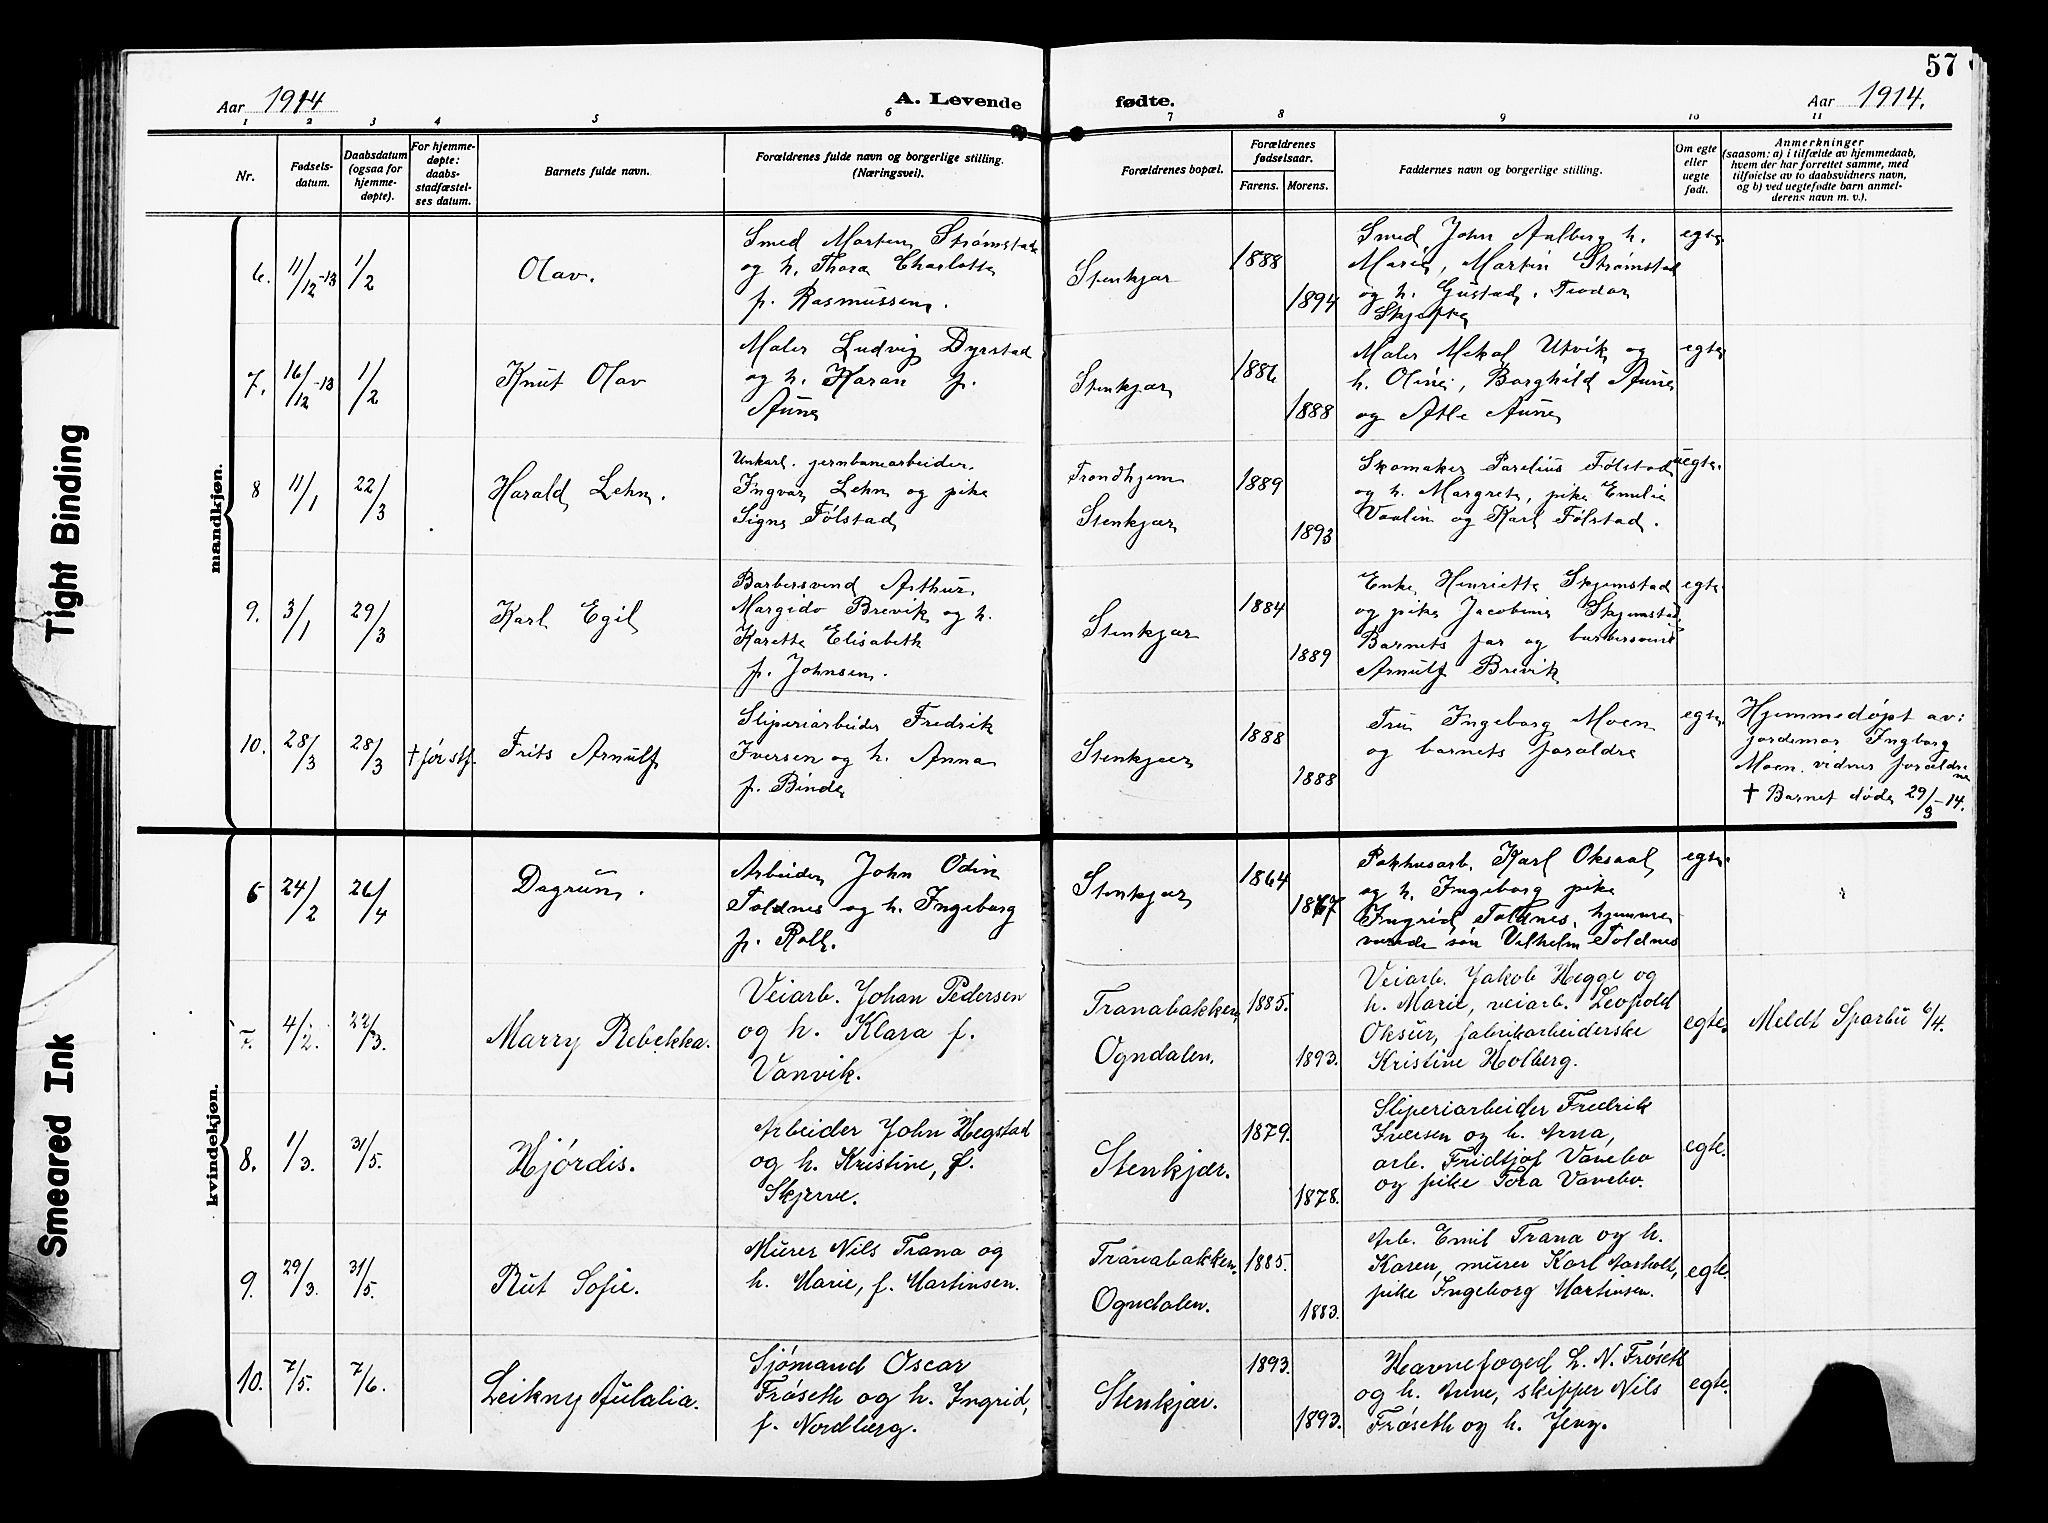 57
Aar 1914
A. Levende
fødte.
Aar 1914.
1 2 3 4 5 6 7 8 9 10 11
Nr.
Fødsels-
datum.
Daabsdatum
(ogsaa for
hjemme-
døpte).
For hjemme-
døpte:
daabs-
stadfæstel-
ses datum.
Barnets fulde navn.
Forældrenes fulde navn og borgerlige stilling.
(Næringsvei).
Forældrenes bopæl.
Forældrenes
fødselsaar.
Farens. Morens.
Faddernes navn og borgerlige stilling.
Om egte
eller
uegte
født.
Anmerkninger
(saasom: a) i tilfælde av hjemmedaab,
hvem der har forrettet samme, med
tilføielse av to daabsvidners navn,
og b) ved uegtefødte barn anmel-
derens navn m. v.).
mandkjøn.
6. 11/12-13 1/2
Olav.
Smed Morten Strømstad
og h. Thora Charlotte
f. Rasmussen.
Stenkjær
1888
1894
Smed John Aalberg h.
Marie, Martin Strømstad
og h. Gustad, Teodor
Skjefte
egte
7. 16/12-13 1/2
Knut Olav
Maler Ludvig Dyrstad
og h. Karan f.
Aune
Stenkjær
1886
1888
Maler Mekal Utvik og
h. Oline, Borghild Aune
og Atle Aune
egte
8 11/1 22/3
Harald Lehn.
Unkarl. jernbanearbeider
Ingvar Lehn og pike
Signe Følstad
Trondhjem
Stenkjær
1889
1893
Skomaker Parelius Følstad
og h. Margrete, pike Emilie
Vaalin og Karl Følstad.
uegte.
9. 3/1 29/3
Karl Egil
Barbersvend Arthur
Margido Brevik og h.
Karette Elisabeth
f. Johnsen.
Stenkjær
1884
1889
Enke Henriette Skjemstad
og pike Jacobine Skjemstad,
Barnets far og barbersvend
Arnulf Brevik
egte
10. 28/3 28/3 † før stf.
Frits Arnulf
Sliperiarbeider Fredrik
Iversen og h. Anna
f. Binde
Stenkjær
1888
1888
Fru Ingeborg Moen
og barnets forældre
egte
Hjemmedøpt av:
jordemor Ingborg
Moen. vidner forældrene
† Barnet døde 29/3-14.
kvindekjøn.
6 24/2 26/4
Dagrun.
Arbeider John Odin
Toldnes og h. Ingeborg
f. Roll.
Stenkjær
1864
1867
Pakhusarb. Karl Oksaal
og h. Ingeborg pike
Ingrid Toldnes, hjemme
værende søn Vilhelm Toldnes
egte
7. 4/2. 22/3.
Marry Rebekka.
Veiarb. Johan Pedersen
og h. Klara f.
Vanvik.
Tranabakken,
Ogndalen.
1885.
1893.
Veiarb. Jakob Hegge og
h. Marie, veiarb. Leopold
Oksur, fabrikarbeiderske
Kristine Holberg.
egte.
Meldt Sparbu 6/4.
8. 1/3. 31/5.
Hjørdis.
Arbeider John Hegstad
og h. Kristine, f.
Skjerve.
Stenkjær.
1879.
1878.
Sliperiarbeider Fredrik
Iversen og h. Arna,
arb. Fridtjof Vanebo
og pike Tora Vanebo.
egte.
9. 29/3. 31/5.
Rut Sofie.
Murer Nils Trana og
h. Marie, f. Martinsen.
Tranabakken.
Ogndalen.
1885.
1883.
Arb. Emil Trana og h.
Karen, murer Karl Aarholt,
pike Ingeborg Martinsen.
egte.
10. 7/5. 7/6.
Leikny Aulalia.
Sjømand Oscar
Frøseth og h. Ingrid,
f. Nordberg.
Stenkjær.
1893.
1893.
Havnefoged L. N. Frøseth
og h. Anne, skipper Nils
Frøseth og h. Jeny.
egte.
Tight Binding
Smeared Ink